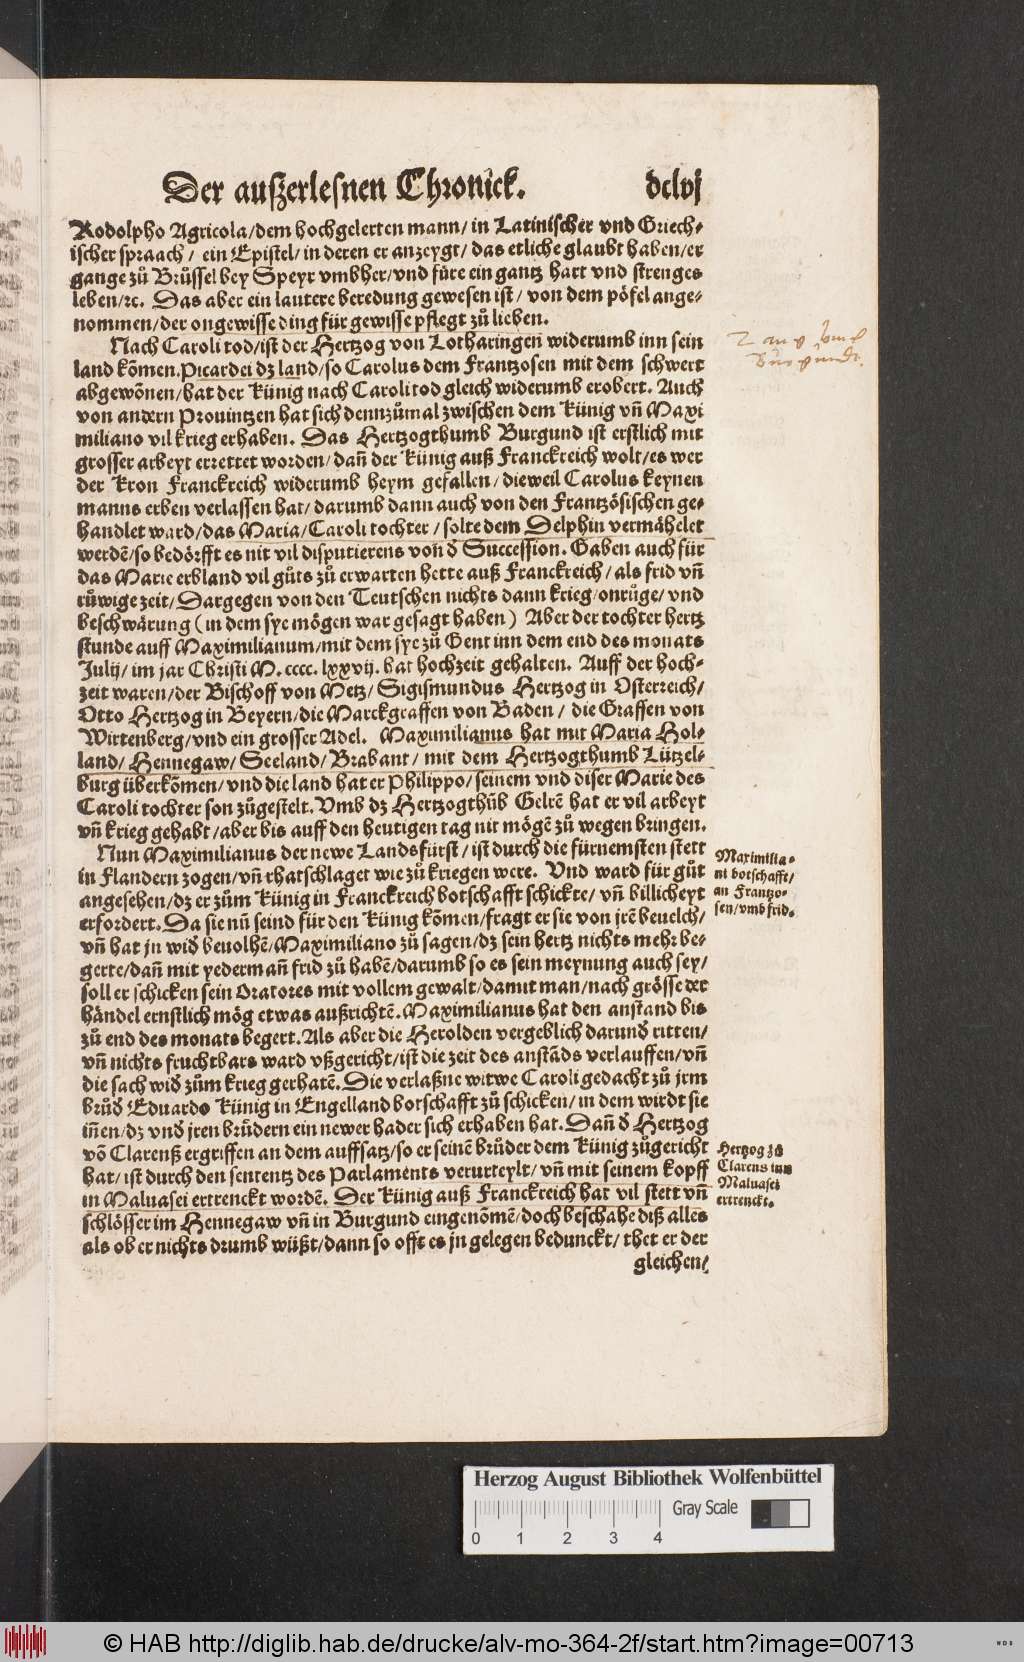 Der auszerlesnen Chronick. dclvj
Rodolpho Agricola/dem hochgelerten mann/in Latinischer vnd Griech-
ischer spraach/ ein Epistel/in deren er anzeygt/ das etliche glaubt haben/er
gange zů Brüssel bey Speyr vmbher/vnd füre ein gantz hart vnd strenges
leben/ꝛc. Das aber ein lautere beredung gewesen ist/ von dem pöfel ange-
nommen/der ongewisse ding für gewisse pflegt zů lieben.
Nach Caroli tod/ist der Hertzog von Lotharingen widerumb inn sein
land kõmen. Picardei dz land/so Carolus dem Frantzosen mit dem schwert
abgewõnen/hat der Künig nach Caroli tod gleich widerumb erobert. Auch
von andern Prouintzen hat sich dennzůmal zwischen dem Künig vñ Maxi
miliano vil krieg erhaben. Das Hertzogthumb Burgund ist erstlich mit
grosser arbeyt errettet worden/dañ der Künig auß Franckreich wolt/es wer
der Kron Franckreich widerumb heym gefallen/dieweil Carolus keynen
manns erben verlassen hat/darumb dann auch von den Frantzösischen ge-
handlet ward/das Maria/Caroli tochter/solte dem Delphin vermähelet
werdẽ/so bedörfft es nit vil disputierens von đ Succession. Gaben auch für
das Marie erbland vil gůts zů erwarten hette auß Franckreich/als frid vñ
růwige zeit/Dargegen von den Teutschen nichts dann krieg/onrůge/vnd
beschwärung (in dem sye mögen war gesagt haben) Aber der tochter hertz
stunde auff Maximilianum/mit dem sye zů Gent inn dem end des monats
Julij/im jar Christi M. cccc. lxxvij. hat hochzeit gehalten. Auff der hoch-
zeit waren/der Bischoff von Metz/Sigismundus Hertzog in Osterreich/
Otto Hertzog in Beyern/die Marckgraffen von Baden/ die Graffen von
Wirtenberg/vnd ein grosser Adel. Maximilianus hat mit Maria Hol-
land/Hennegaw/Seeland/Brabant/ mit dem Hertzogthumb Lützel-
burg überkõmen/vnd die land hat er Philippo/seinem vnd diser Marie des
Caroli tochter son zůgestelt. Vmb dz Hertzogthũb Gelrẽ hat er vil arbeyt
vñ krieg gehabt/aber bis auff den heutigen tag nit mögẽ zů wegen bringen.
Nun Maximilianus der newe Landsfürst/ist durch die fürnemsten stett
in Flandern zogen/vñ rhatschlaget wie zů kriegen were. Vnd ward für gůt
angesehen/dz er zům Künig in Franckreich botschafft schickte/vñ billicheyt
erfordert. Da sie nũ seind für den Künig kõmen/fragt er sie von jrẽ beuelch/
vñ hat jn wiđ beuolhẽ/Maximiliano zů sagen/dz sein hertz nichts mehr be-
gerte/dañ mit yedermañ frid zů habẽ/darumb so es sein meynung auch sey/
soll er schicken sein Oratores mit vollem gewalt/damit man/nach grösse der
händel ernstlich mög etwas außrichtẽ. Maximilianus hat den anstand bis
zů end des monats begert. Als aber die Herolden vergeblich darunđ ritten/
vñ nichts fruchtbars ward vßgericht/ist die zeit des anstãds verlauffen/vñ
die sach wiđ zům krieg gerhatẽ. Die verlaßne witwe Caroli gedacht zů jrm
brůđ Eduardo Künig in Engelland botschafft zů schicken/in dem wirdt sie
iñen/dz vnđ jren brůdern ein newer hader sich erhaben hat. Dañ đ Hertzog
võ Clarenß ergriffen an dem auffsatz/so er seinẽ brůder dem Künig zůgericht
hat/ist durch den sententz des Parlaments verurteylt/vñ mit seinem kopff
in Maluasei ertrenckt wordẽ. Der Künig auß Franckreich hat vil stett vñ
schlösser im Hennegaw vñ in Burgund eingenõmẽ/doch beschahe diß alles
als ob er nichts drumb wüßt/dann so offt es jn gelegen bedunckt/thet er der
gleichen/
Maximilia-
ni botschafft/
an Frantzo-
sen/vmb frid.
Hertzog zů
Clarens inn
Maluasei
ertrenckt.
Herzog August Bibliothek Wolfenbüttel
Gray Scale
0 1 2 3 4
© HAB http://diglib.hab.de/drucke/alv-mo-364-2f/start.htm?image=00713